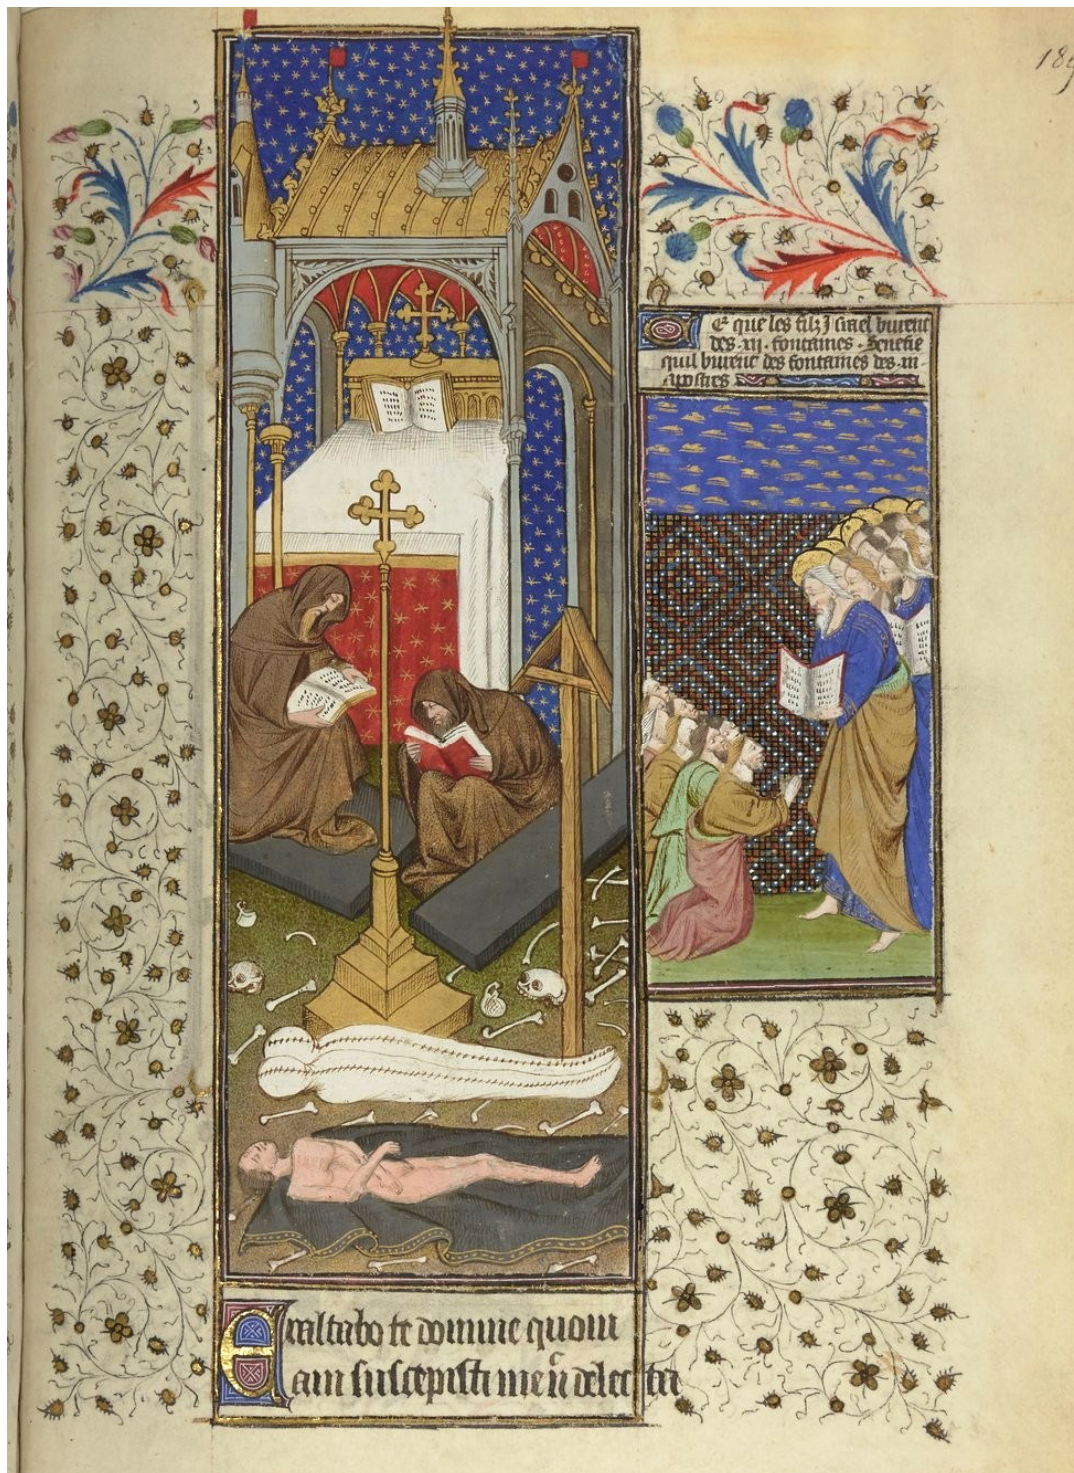 Ce que les filz Israel burent
des .xij. fontaines . Senefie
quil burent des fontaines des .xij.
apostres
Exaltabo te domine quoni
am suscepisti me nec delecta